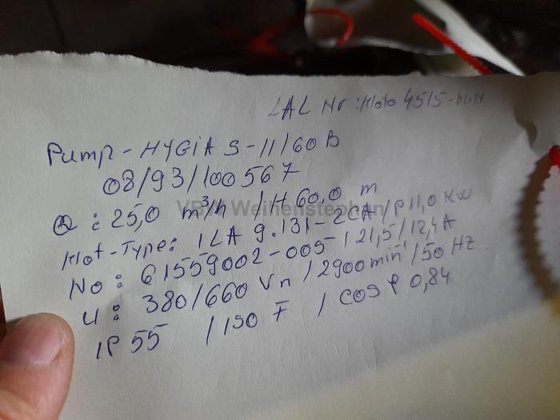 LAL Nr:
Pump - HYGIA S-11/60 B
08/93/100567
Q: 25,0 m³/h / H 60,0 m
Mot-Type: 1LA 9.131-2CA / P 11,0 KW
No: 61559002-005 / 21,5/12,4 A
U: 380/660 Vn / 2900 min⁻¹ / 50 Hz
IP 55 / ISO F / cos φ 0,84
VBW Weihenstephan